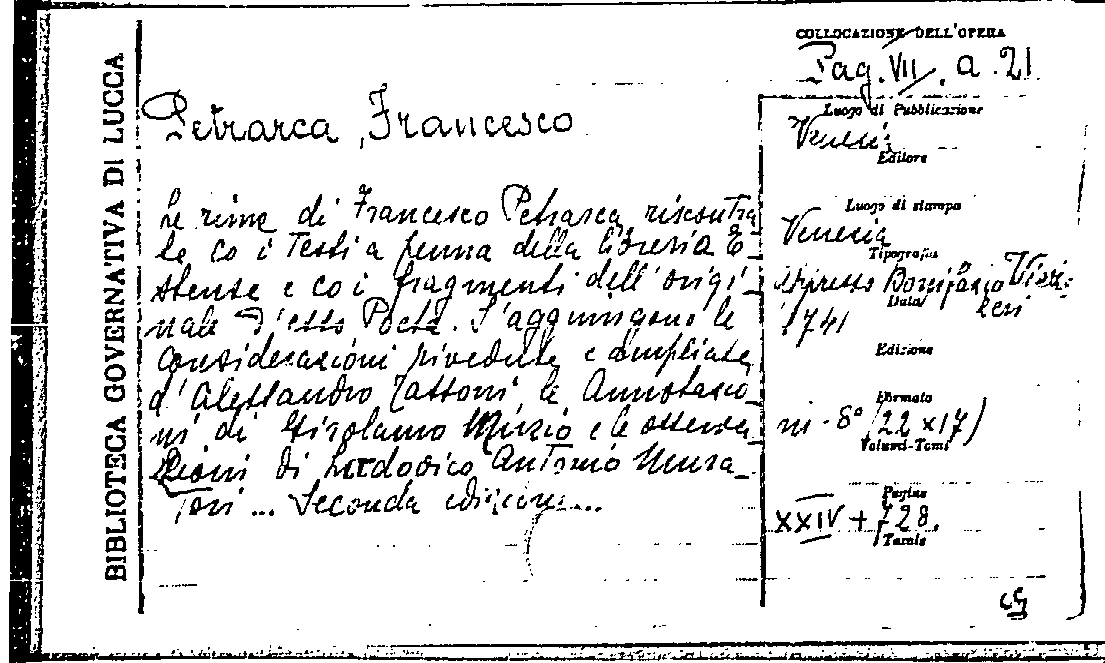 BIBLIOTECA GOVERNATIVA DI LUCCA
COLLOCAZIONE DELL'OPERA
Pag. VII. a. 21
Petrarca, Francesco
Le rime di Francesco Petrarca riscontra
te co i Testi a penna della libreria E-
stense e co i fragmenti dell'origi-
nale d'esso Poeta. S'aggiungono le
considerazioni rivedute e ampliate
d'Alessandro Tassoni, le Annotazio-
ni di Girolamo Muzio e le osserva
zioni di Lodovico Antonio Mura-
tori ... Seconda edizione...
Luogo di Pubblicazione
Venezia
Editore
Luogo di stampa
Venezia
Tipografia
appresso Bonifazio Viezzeri
Data
1741
Edizione
Formato
in-8° (22 x 17)
Volumi-Tomi
Pagine
XXIV + 728.
Tavole